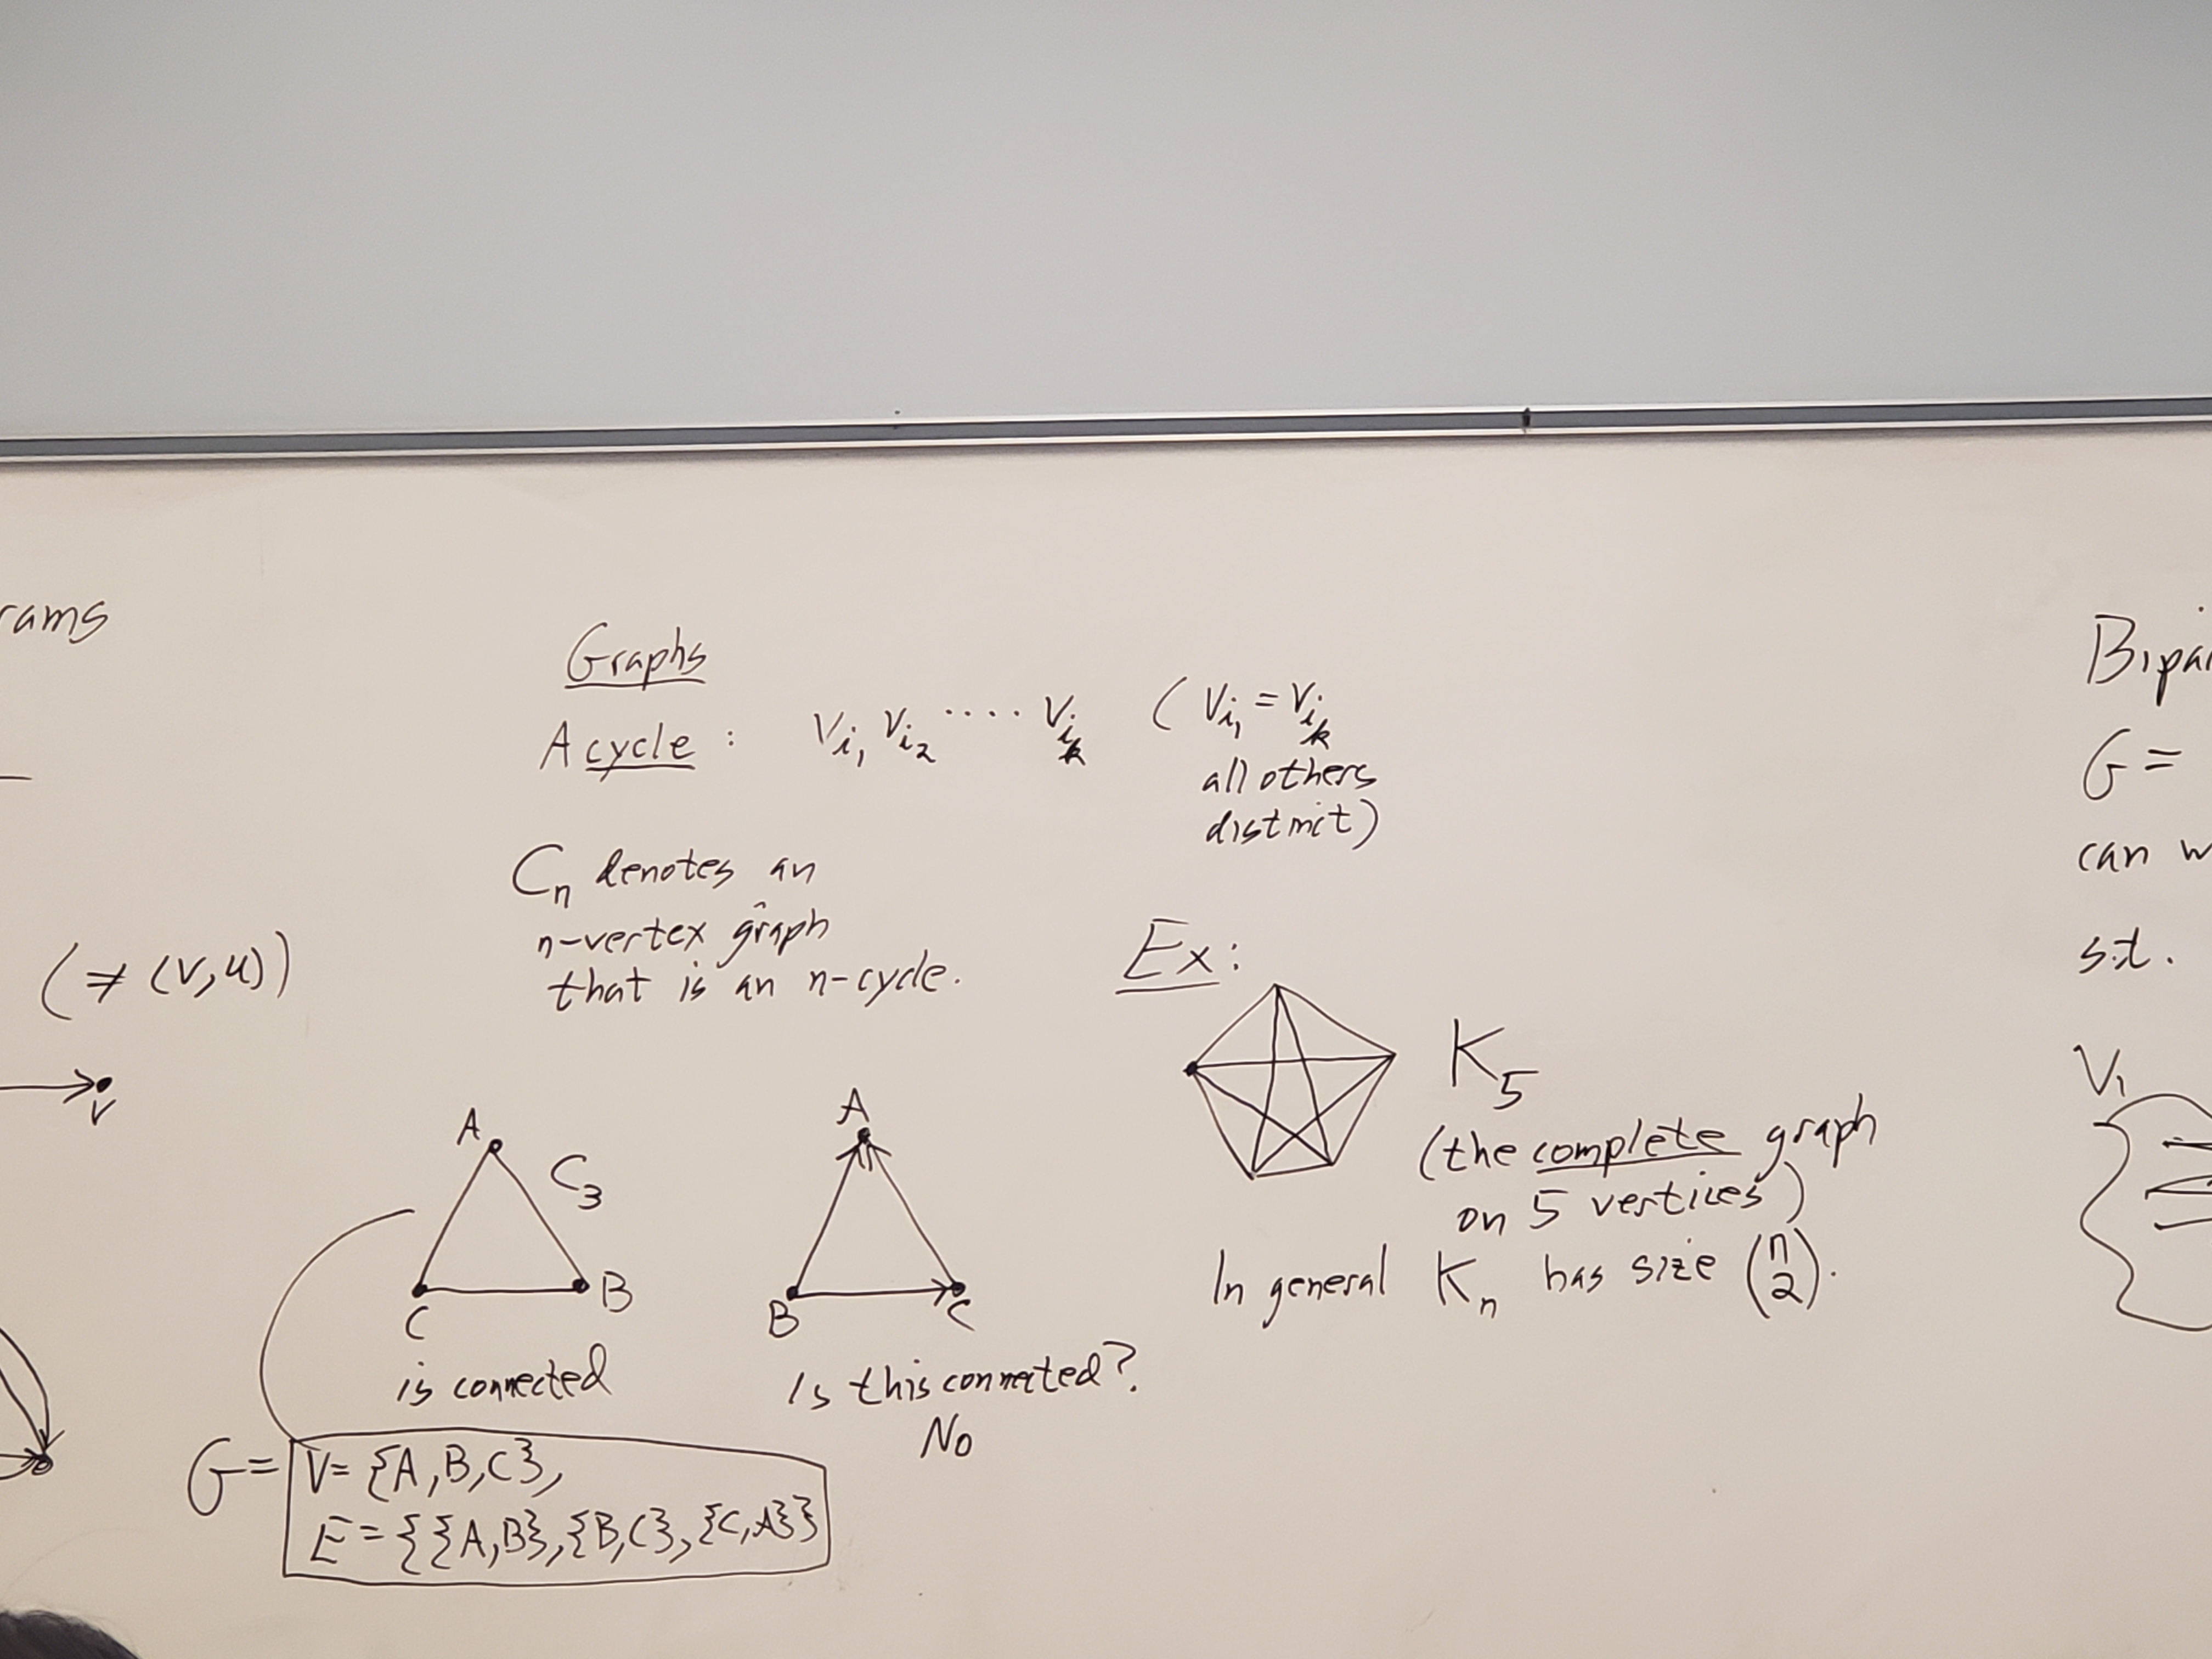 rams
(≠ (v,u))
v
Graphs
A cycle : v_{i_1} v_{i_2} .... v_{i_k} ( v_{i_1} = v_{i_k}
all others
distinct)
C_n denotes an
n-vertex graph
that is an n-cycle.
A
C_3
C
B
is connected
G = V = {A,B,C},
E = {{A,B},{B,C},{C,A}}
A
B
C
Is this connected?
No
Ex:
K_5
(the complete graph
on 5 vertices)
In general K_n has size (n 2).
Bipar
G =
can w
s.t.
V_1